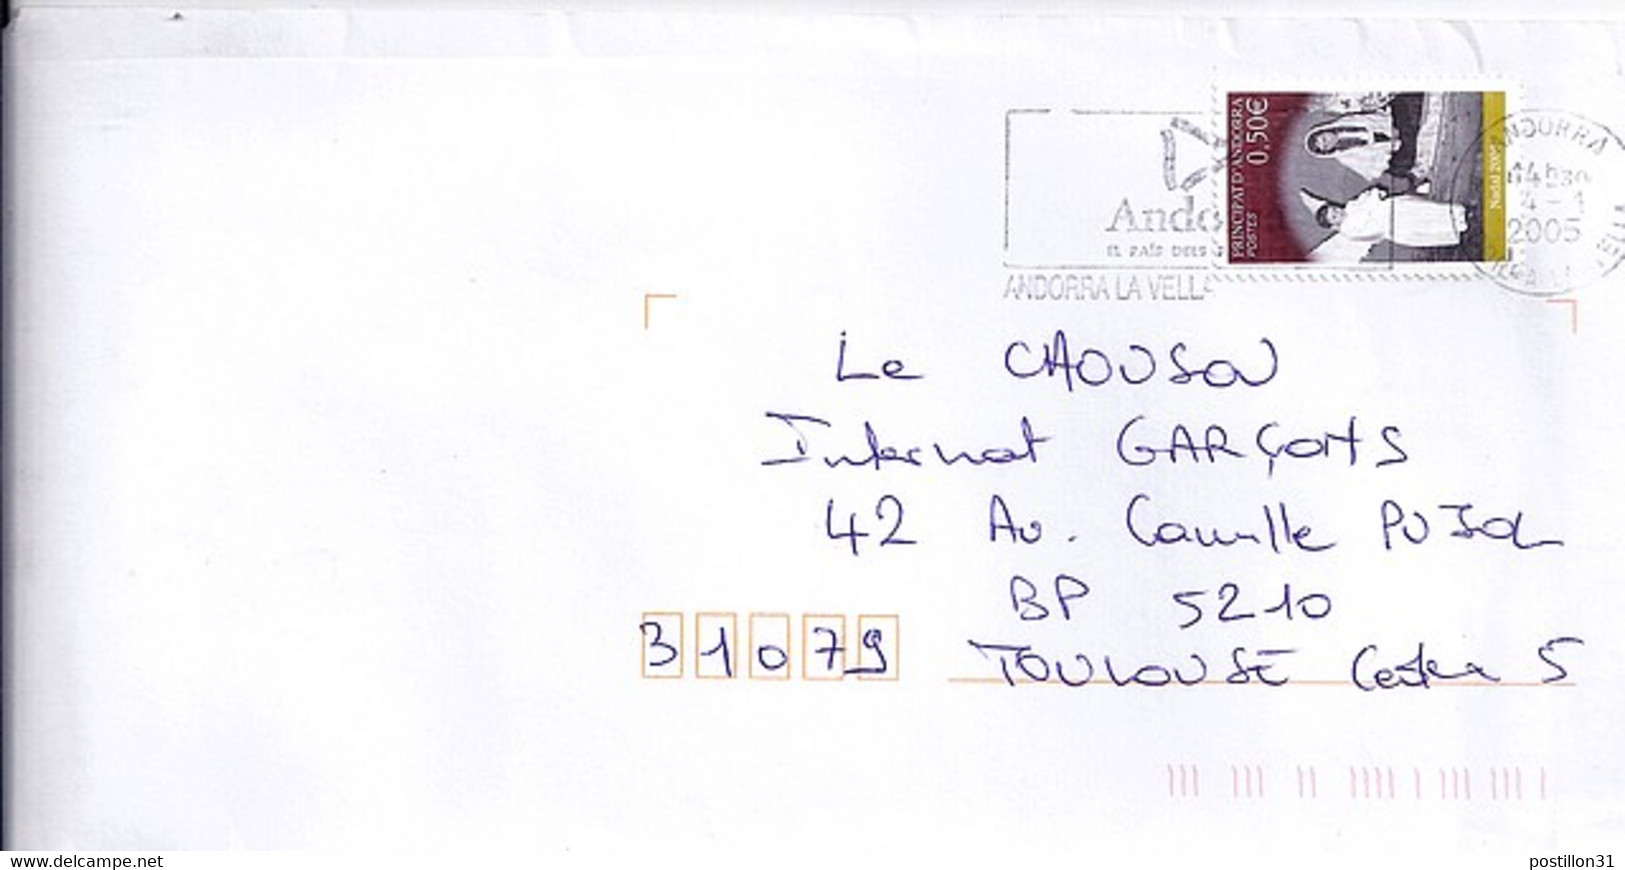 PRINCIPAT D'ANDORRA
POSTES
0,50€
Nadal 2005
ANDORRA
14h30
4-1
2005
Ando
EL PAÍS DELS
ANDORRA LA VELLA
Le CHAOUSOU
Internat GARÇONS
42 Av. Camille PUJOL
BP 5210
31079 TOULOUSE Cedex 5
www.delcampe.net
postillon31